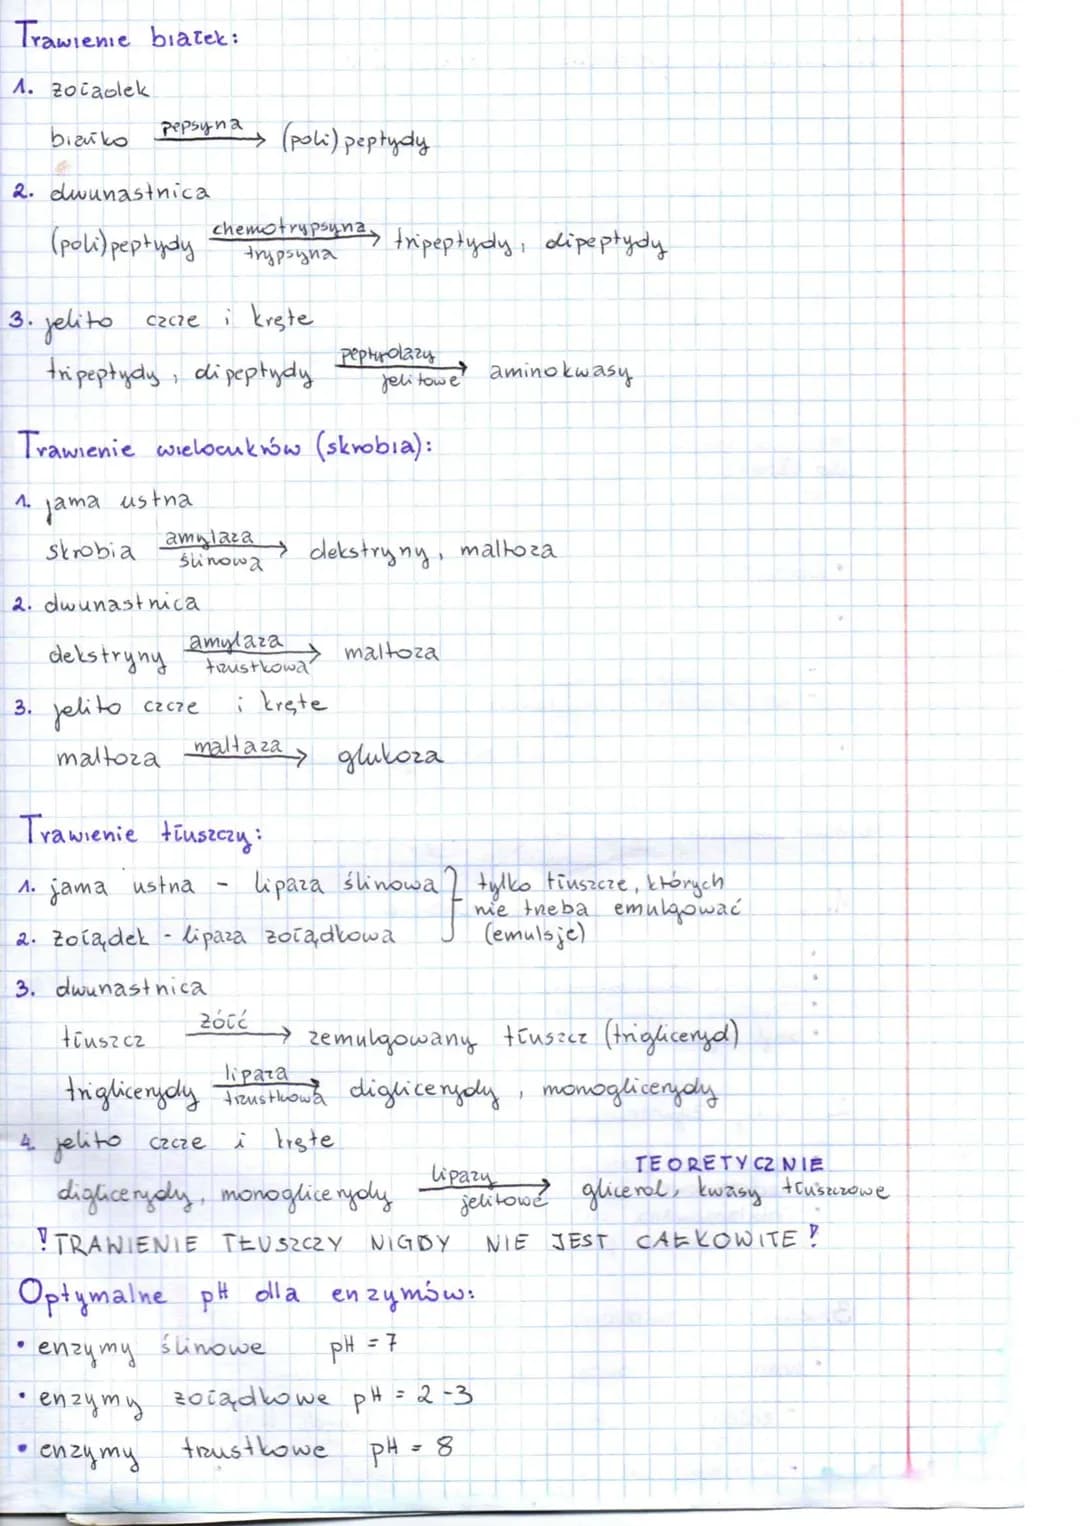 Trawienie białek:
1. żołądek
białko pepsyna → (poli)peptydy
2. dwunastnica
(poli)peptydy chemotrypsyna, trypsyna → tripeptydy, dipeptydy
3. jelito czcze i kręte
tripeptydy, dipeptydy peptydazy jelitowe → aminokwasy
Trawienie wielocukrów (skrobia):
1. jama ustna
skrobia amylaza ślinowa → dekstryny, maltoza
2. dwunastnica
dekstryny amylaza trzustkowa → maltoza
3. jelito czcze i kręte
maltoza maltaza → glukoza
Trawienie tłuszczy:
1. jama ustna - lipaza ślinowa } tylko tłuszcze, których
nie trzeba emulgować
2. żołądek - lipaza żołądkowa (emulsje)
3. dwunastnica
tłuszcz żółć → zemulgowany tłuszcz (trigliceryd)
triglicerydy lipaza trzustkowa → diglicerydy, monoglicerydy
4. jelito czcze i kręte
TEORETYCZNIE
diglicerydy, monoglicerydy lipazy jelitowe → glicerol, kwasy tłuszczowe
! TRAWIENIE TŁUSZCZY NIGDY NIE JEST CAŁKOWITE !
Optymalne pH dla enzymów:
• enzymy ślinowe pH = 7
• enzymy żołądkowe pH = 2-3
• enzymy trzustkowe pH = 8